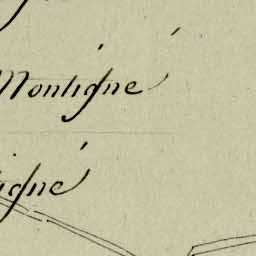 Montigné
igné